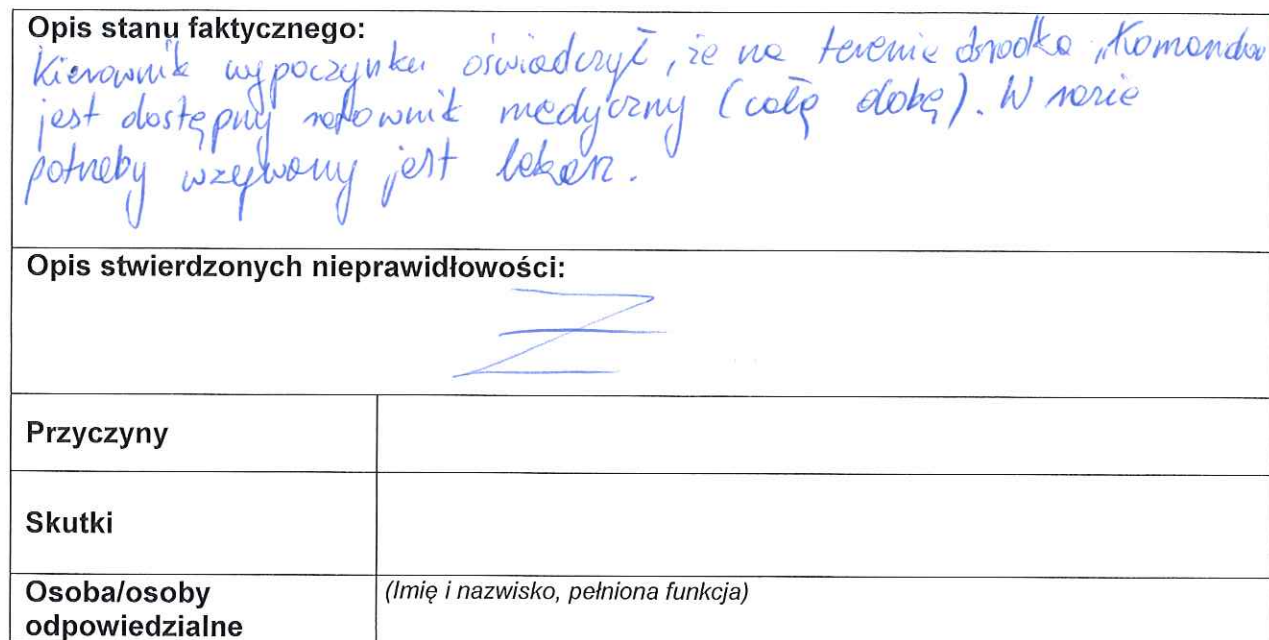 Opis stanu faktycznego:
Kierownik wypoczynku oświadczył, że na terenie ośrodka „Komandor
jest dostępny ratownik medyczny (całą dobę). W razie
potrzeby wzywany jest lekarz.
Opis stwierdzonych nieprawidłowości:
Przyczyny
Skutki
Osoba/osoby
odpowiedzialne
(Imię i nazwisko, pełniona funkcja)